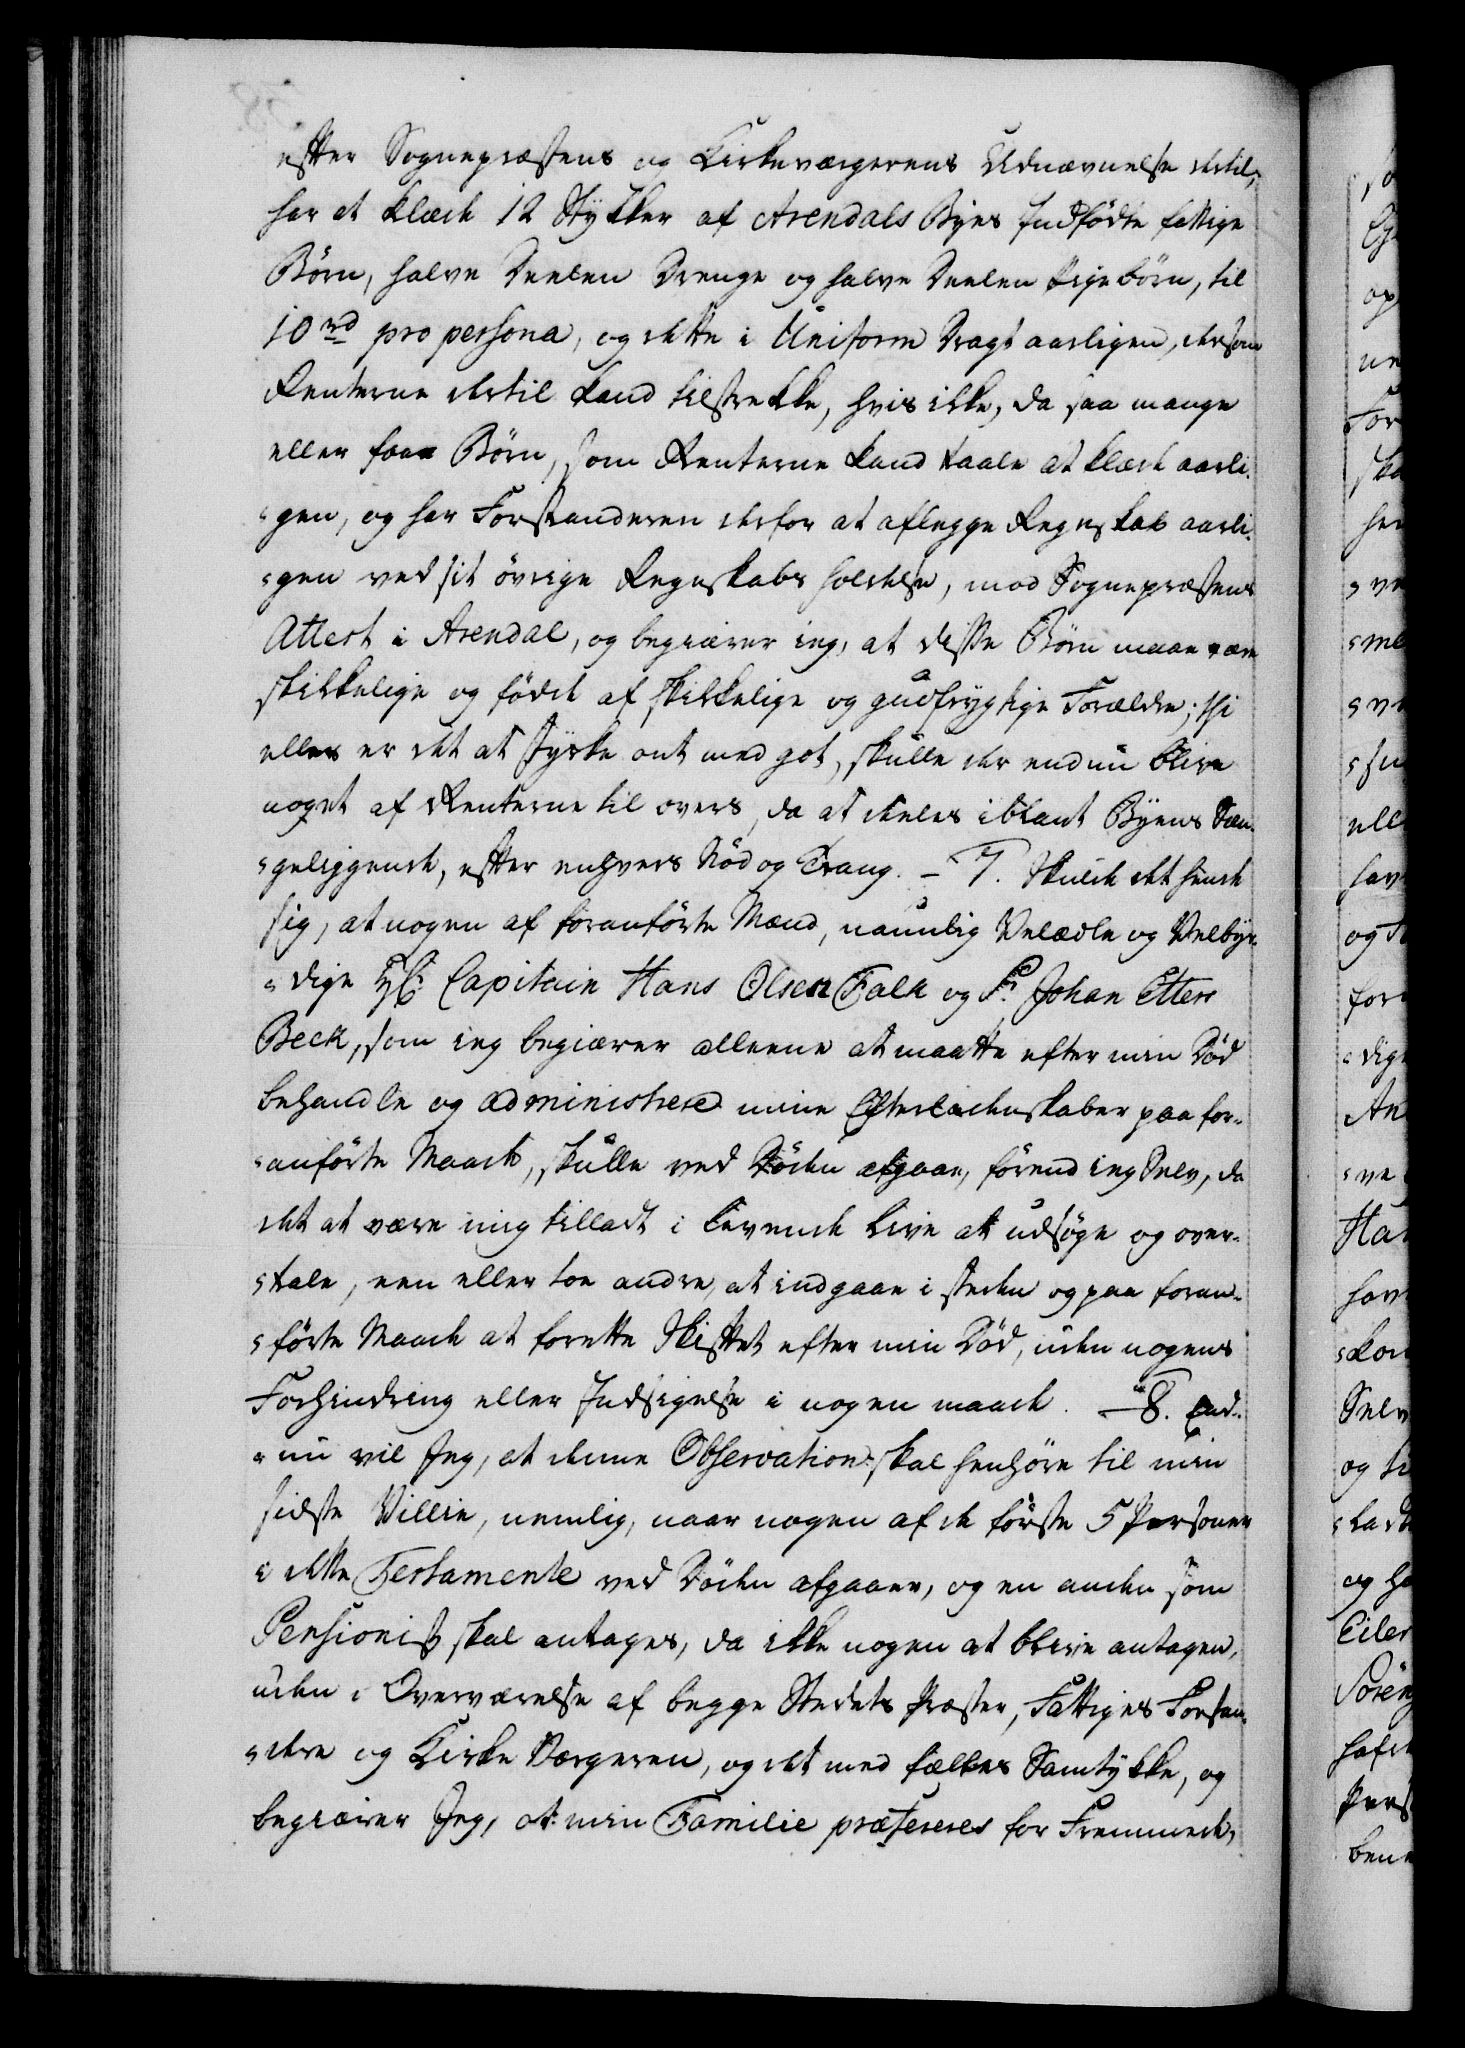 efter Sognepræstens og Kirkeværgerens Udnævnelse dertil,
har at klæde 12 Stykker af Arendals Byes Indfödte fattige
Börn, halve Deelen Drenge og halve Deelen Pigebörn, til
10 rd pro persona, og dette i Uniform Dragt aarligen, dersom
Renterne dertil kand tilstrekke, hvis ikke, da saa mange
eller faae Börn, som Renterne kand taale at klæde aarli-
gen, og har Forstanderen derfor at aflegge Regnskab aarli-
gen ved sit övrige Regnskabs holdelse, mod Sognepræstens
Attest i Arendal, og begiærer ieg, at disse Börn maae være
skikkelige og födde af skikkelige og gudfrygtige Forældre; thi
ellers er det at styrke ont med got, skulle der endnu blive
noget af Renterne til overs, da at deeles iblant Byens Sæn-
geliggende, efter enhvers Nöd og Trang. – 7. Skulde det hende
sig, at nogen af foranförte Mænd, naunlig Velædle og Velbyr-
dige Hr. Capitain Hans Olsen Falk og Sr. Johan Etters
Beck, som ieg begiærer alleene at maatte efter min Död
behandle og administrere mine Efterladenskaber paa for-
anförte Maade, skulle ved Döden afgaae, förend ieg Selv, da
det at være mig tilladt i levende Live at udsöge og over-
tale, een eller toe andre, at indgaae i steden og paa foran-
förte Maade at forette Skiftet efter min Död, uden nogens
Forhindring eller Indsigelse i nogen maade. – 8. End-
nu vil Jeg, at denne Observation skal henhöre til min
sidste Villie, nemlig, naar nogen af de förste 5 Personer
i dette Testamente ved Döden afgaaer, og en anden som
Pensionist skal antages, da ikke nogen at blive antagen,
uden i Overværelse af begge Stedets Præster, Fattiges Forstan-
dere og Kirke Værgeren, og det med fælles Samtykke, og
begiærer Jeg, at min Familie præfereres for Fremmede,